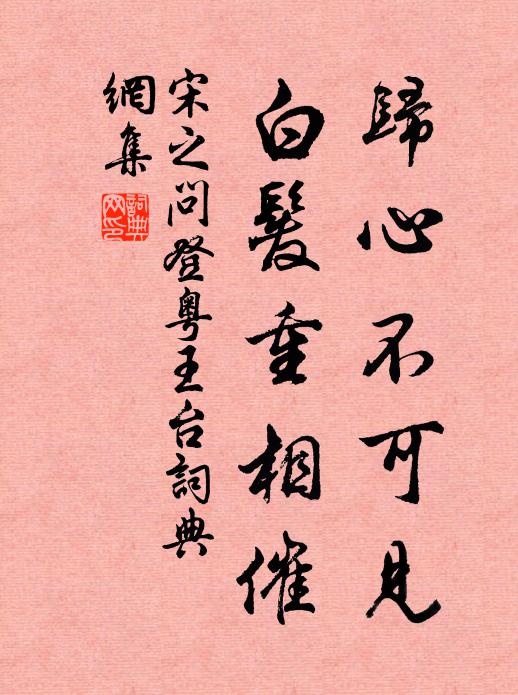 歸心不可見
白髮重相催
宋之問登粵王台詞典
網集
詞典
網印